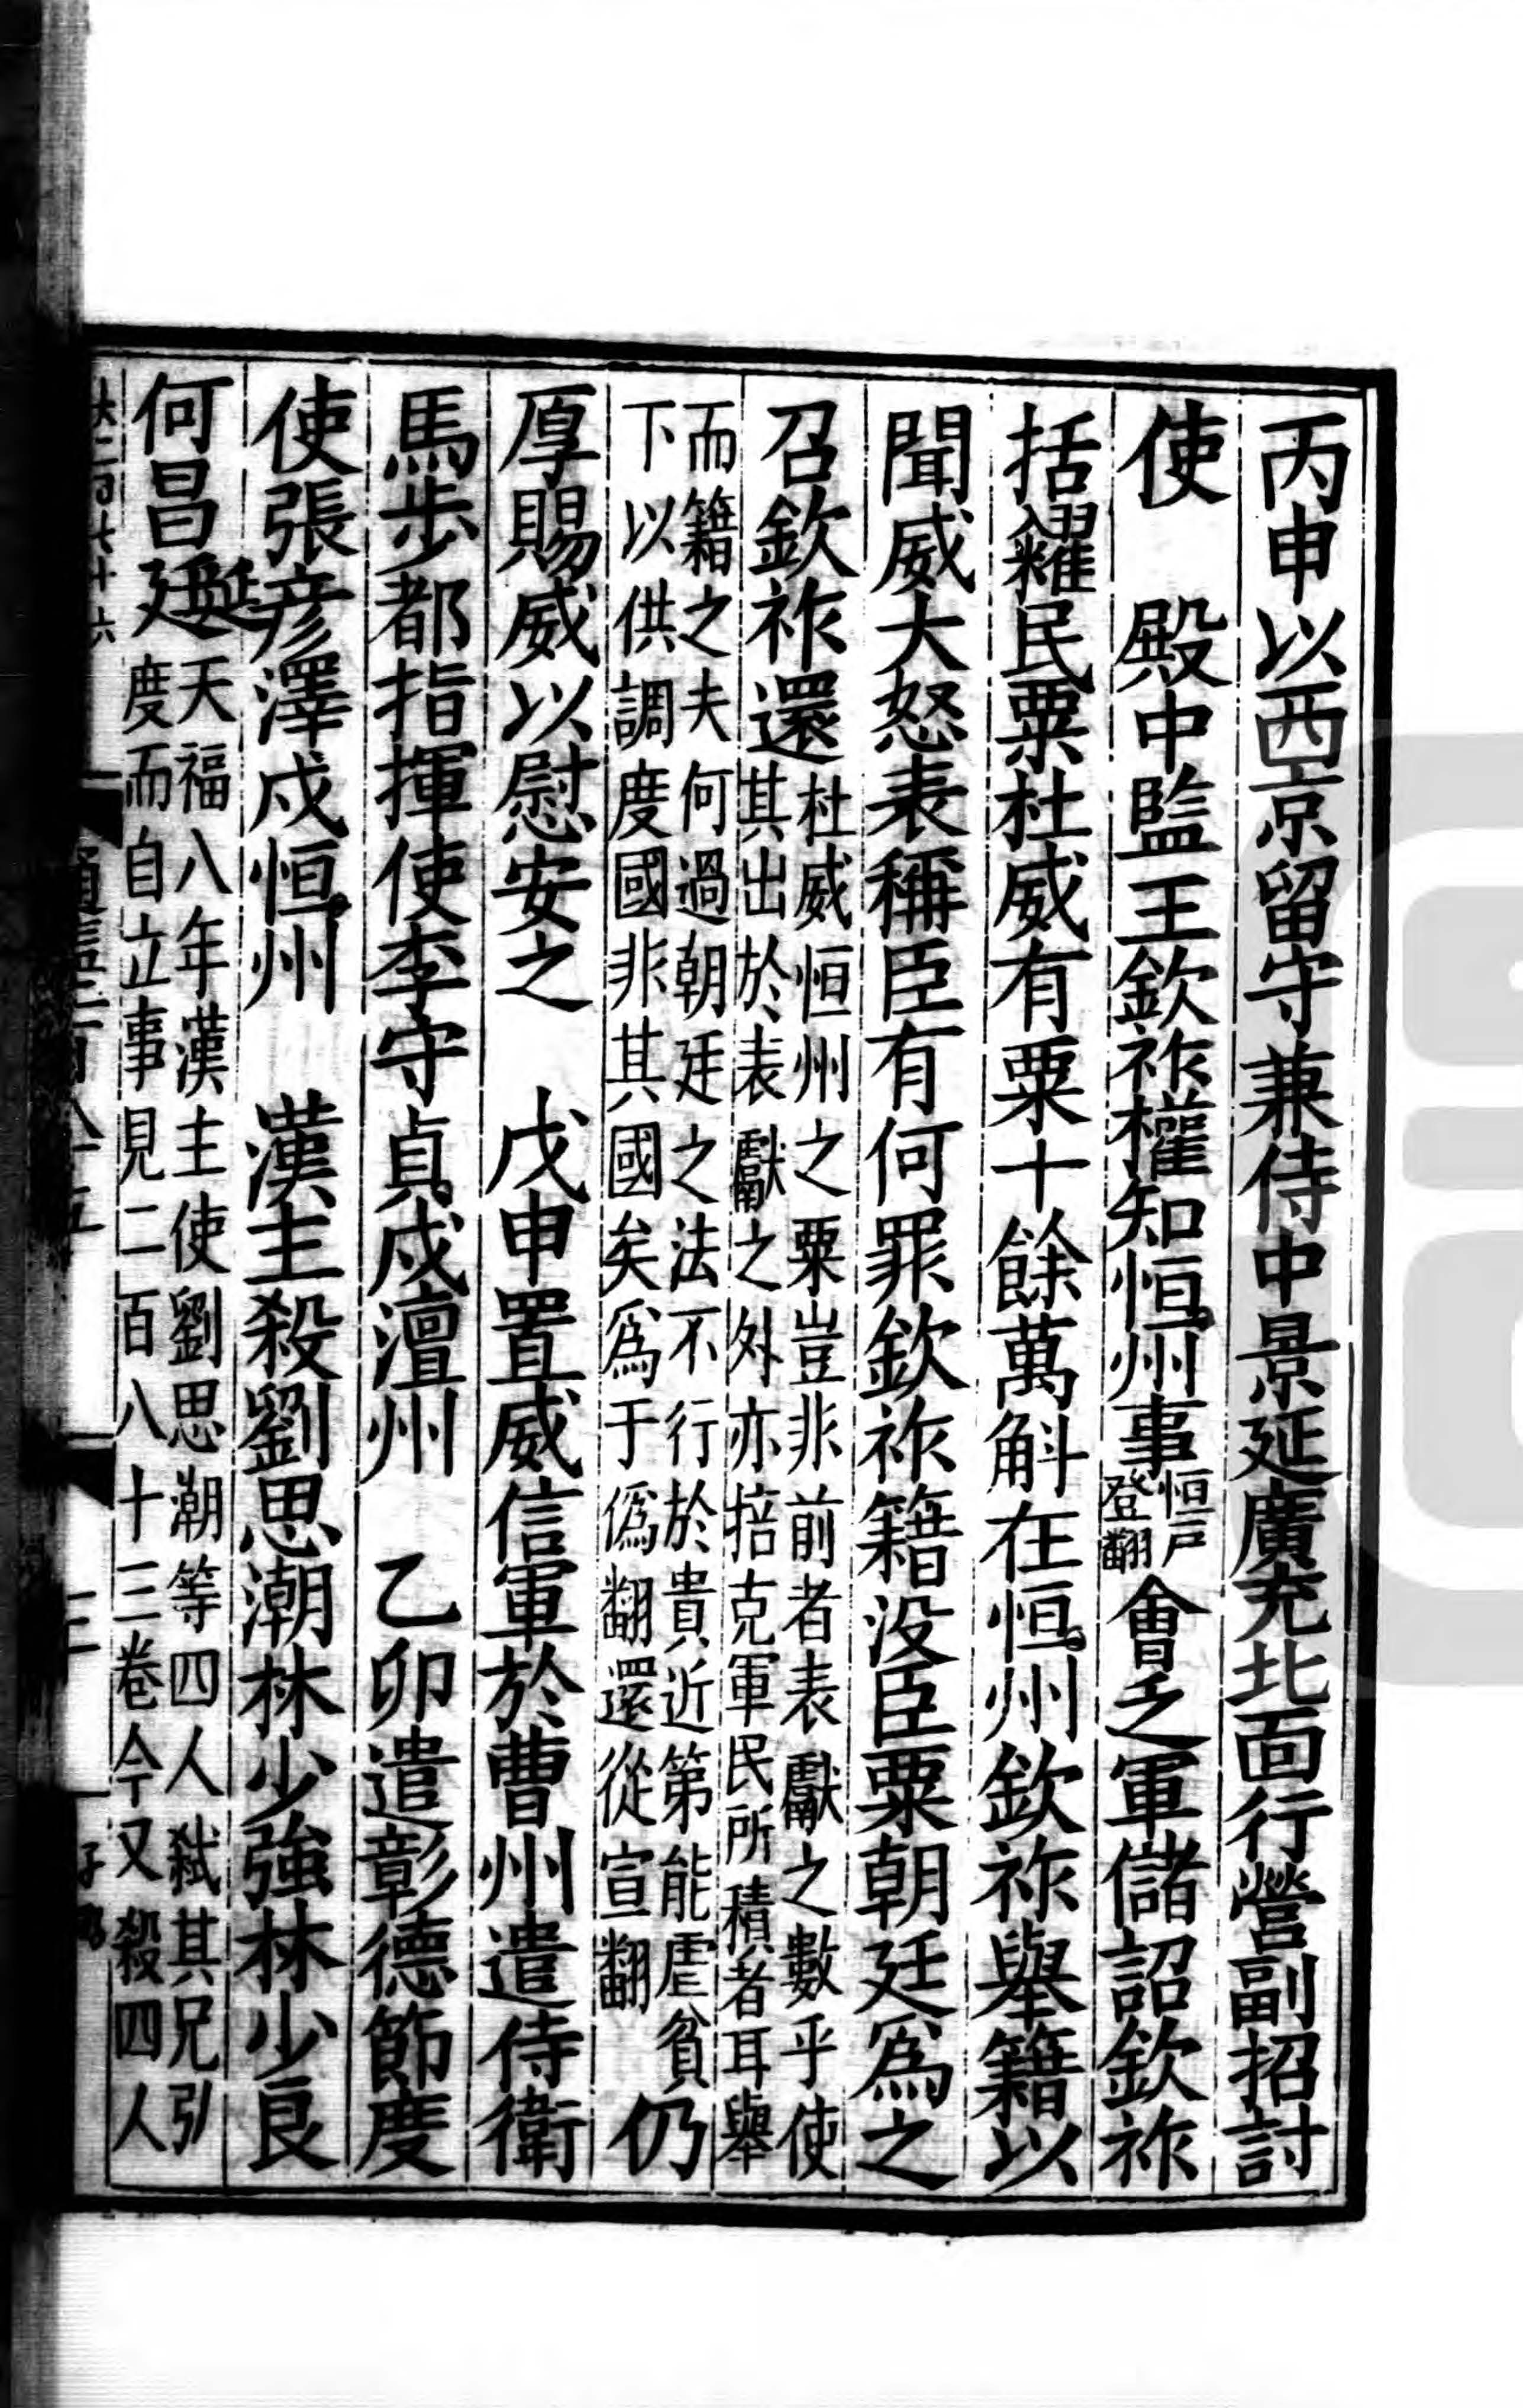 丙申以西京留守兼侍中景延廣充北面行營副招討
使　殿中監王欽祚權知恒州事恒戶登翻會乏軍儲詔欽祚
括糴民粟杜威有粟十餘萬斛在恒州欽祚舉籍以
聞威大怒表稱臣有何罪欽祚籍没臣粟朝廷爲之
召欽祚還杜威恒州之粟豈非前者表獻之數乎使其出於表獻之外亦掊克軍民所積者耳舉
而籍之夫何過朝廷之法不行於貴近第能虐貧下以供調度國非其國矣爲于僞翻還從宣翻仍
厚賜威以慰安之　戊申置威信軍於曹州遣侍衛
馬步都指揮使李守貞戍澶州　乙卯遣彰德節度
使張彥澤戍恒州　漢主殺劉思潮林少強林少良
何昌廷延天福八年漢主使劉思潮等四人弑其兄引度而自立事見二百八十三卷今又殺四人